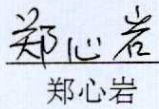 郑心岩
郑心岩